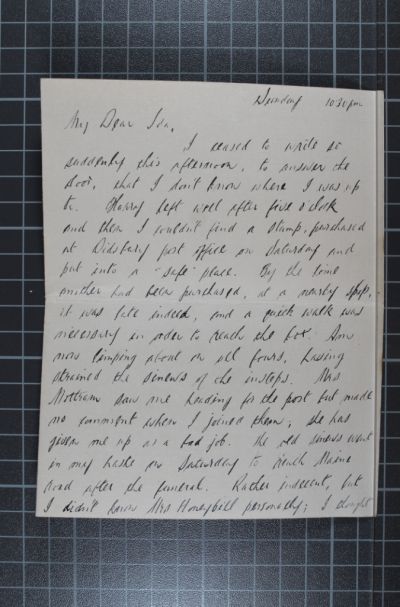 Sunday 10.30pm
My Dear Ida,
I ceased to write so
suddenly this afternoon, to answer the
door, that I don't know where I was up
to. Harry left well after five o'clock
and then I couldn't find a stamp, purchased
at Didsbury post office on Saturday and
put into a "safe" place. By the time
another had been purchased, at a nearby shop,
it was late indeed, and a quick walk was
necessary in order to reach the box. Am
now limping about on all fours, having
strained the sinews of the insteps. Mrs
Mottram saw me heading for the post but made
no comment when I joined them; she has
given me up as a bad job. The old sinews went
in my haste on Saturday to reach Maine
Road after the funeral. Rather indecent, but
I didn't know Mrs Honeybill personally; I thought